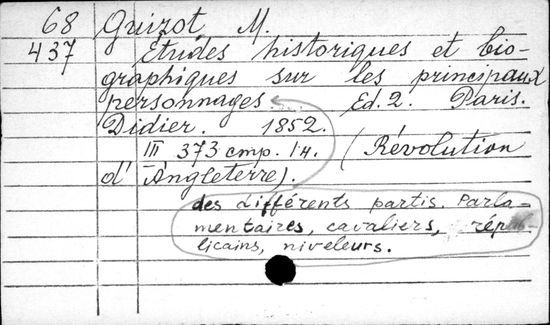 68 Guizot, M.
437 Études historiques et bio-
graphiques sur les principaux
personnages. Ed. 2. Paris.
Didier. 1852.
III 373 стр. 1 н. (Révolution
d'Angleterre).
des différents partis. Parla-
mentaires, cavaliers, répub-
licains, niveleurs.